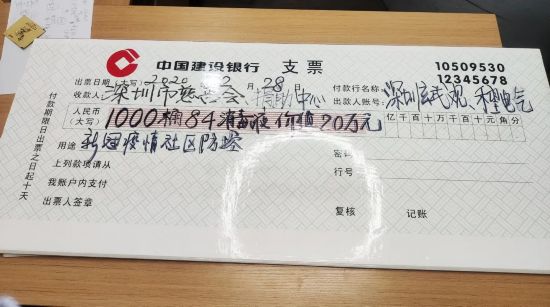 中国建设银行 支票
10509530
12345678
出票日期(大写) 2020 年 2 月 28 日 付款行名称:
收款人: 深圳市慈善会、捐助中心 出票人账号:
人民币(大写) 1000桶84消毒液 价值20万元 亿千百十万千百十元角分
用途 新冠疫情社区防控
密码
上列款项请从
行号
我账户内支付
出票人签章
复核 记账
付款期限自出票之日起十天